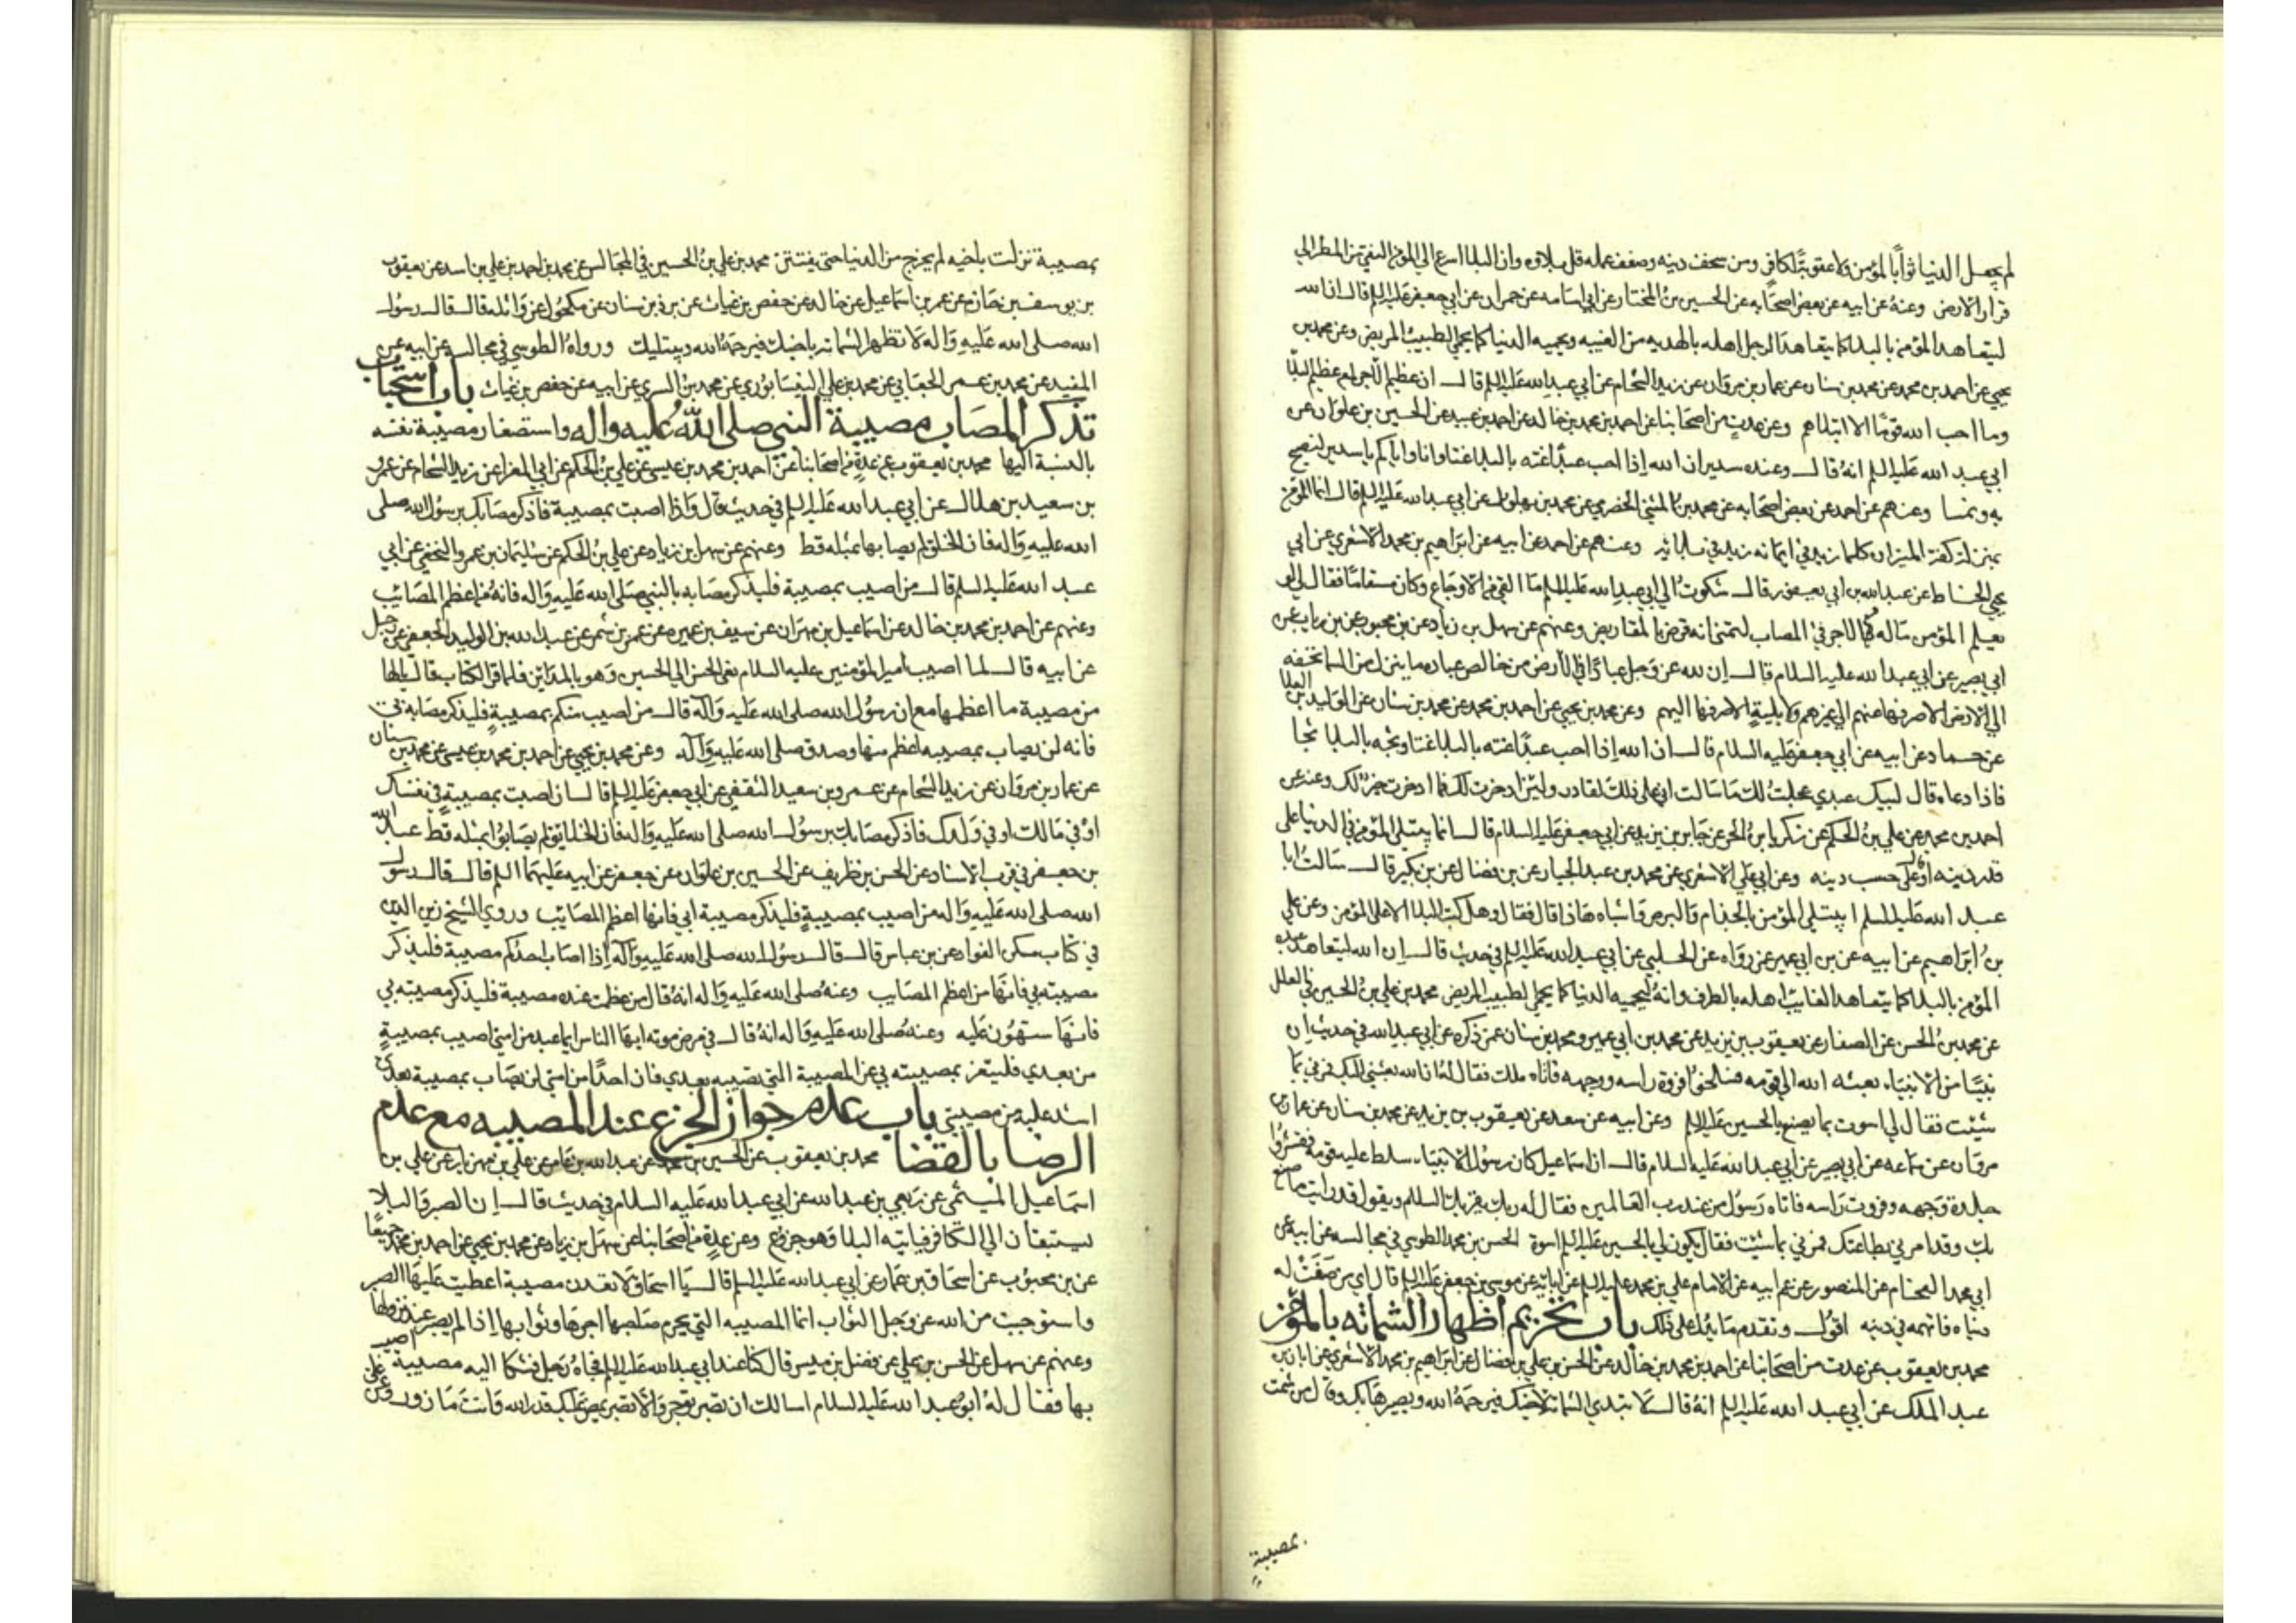 لم يجعل الدنيا ثوابًا لمؤمن ولا عقوبةً لكافر ومن سخف دينه وضعف عمله قل بلاوه وان البلا اسرع الي المؤمن التقي من المطر الي
قرار الارض وعنهُ عن ابيه عن بعض اصحابه عن الحسين بنُ المختار عن ابي اسامه عن حمران عن ابي جعفر عليه السلم قال ان الله
ليتعاهد المؤمن بالبلا كما يتعاهد الرجل اهله بالهديه من الغيبه ويحميه الدنيا كما يحمي الطبيبُ المريض وعن محمد بن
يحيي عن احمد بن محمد عن محمد بن سنان عن عمار بن مروان عن زيد الشحام عن ابي عبد الله عليه السلم قال ان عظيم الاجر لمع عظيم البلا
وما احب الله قومًا الا ابتلاهم وعن عدة من اصحابنا عن احمد بن محمد بن خالد عن احمد بن عبيد عن الحسين بن علوان عن
ابي عبد الله عليه السلم انهُ قال وعنده سدير ان الله إذا احب عبدًا غته بالبلا غتا وانا واياكم يا سدير لنصبح
به ونمسا وعنهم عن احمد عن بعض اصحابه عن محمد بن المثني الحضرمي عن محمد بن بهلول عن ابي عبد الله عليه السلم قال انما المؤمن
بمنزلة كفة الميزان كلما زيد في ايمانه زيد في بلائه وعنهم عن احمد عن ابيه عن ابراهيم بن محمد الاشعري عن ابي
يحيي الحناط عن عبد الله بن ابي يعفور قال شكوتُ الي ابي عبد الله عليه السلم ما القي من الاوجاع وكان مسقامًا فقال لي لو
يعلم المؤمن ماله من الاجر في المصاب لتمني انه قرض بالمقاريض وعنهم عن سهل بن زياد عن بن محبوب عن بن رياب عن
ابي بصير عن ابي عبد الله عليه السلام قال إن لله عز وجل عبادًا في الارض من خالص عباده ما ينزل من السما تحفه
الي الارض الا صرفها عنهم الي غيرهم ولا بلية الا صرفها اليهم وعن محمد بن يحيي عن احمد بن محمد عن محمد بن سنان عن الوليد بن العلا
عن حماد عن ابيه عن ابي جعفر عليه السلام قال ان الله إذا احب عبدًا غته بالبلا غتا وثجه بالبلا ثجا
فاذا دعاه قال لبيك عبدي عجلتُ لك ما سالت اني علي ذلك لقادر ولئن ادخرت لك فما ادخرت خير لك وعنه عن
احمد بن محمد عن علي بنُ الحكم عن زكريا بنُ الحر عن جابر بن يزيد عن ابي جعفر عليه السلام قال انما يبتلي المؤمن في الدنيا علي
قدر دينه او قال علي حسب دينه وعن ابي علي الاشعري عن محمد بن عبد الجبار عن بن فضال عن بن بكير قال سالتُ ابا
عبد الله عليه السلم ايبتلي المؤمن بالجذام والبرص واشباه هاذا قال فقال وهل كتب البلا الا علي المؤمن وعن علي
بنُ ابراهيم عن ابيه عن بن ابي عمير عن رواه عن الحلبي عن ابي عبد الله عليه السلم في حديث قال إن الله ليتعاهد عبده
المؤمن بالبلا كما يتعاهد الغايب اهله بالطرف وانهُ ليحميه الدنيا كما يحمي الطبيب المريض محمد بن علي بنُ الحسين في العلل
عن محمد بنُ الحسن عن الصفار عن يعقوب بن يزيد عن محمد بن ابي عمير ومحمد بن سنان عمن ذكره عن ابي عبد الله في حديث إن
نبيًا من الانبياء بعثه الله الي قومه فسلخوا فروة راسه ووجهه فاتاه ملك فقال لهُ ان الله بعثني اليك فمرني بما
شيت فقال لي اسوت بما يصنع بالحسين عليه السلم وعن ابيه عن سعد عن يعقوب بن يزيد عن محمد بن سنان عن عمار بن
مروان عن سماعه عن ابي بصير عن ابي عبد الله عليه السلام قال ان اسماعيل كان رسول الانبياء سلط عليه قومه فقشروا
جلدة وجهه وفروة راسه فاتاه رسول من عند رب العالمين فقال له ربك يقريك السلام ويقول قد رايت ما صنع
بك وقد امرني بطاعتك فمرني بما شيت فقال يكون لي بالحسين عليه السلم اسوة الحسن بن محمد الطوسي في مجالسه عن ابيه عن
ابي محمد الفحام عن المنصوري عن عم ابيه عن الامام علي بن محمد عليه السلم عن ابائه عن موسي بن جعفر عليه السلم قال اي من صفت له
دنياه فاتهمه في دينه اقول وتقدم ما يدل علي ذلك باب تحريم اظهار الشماته بالمؤمن
محمد بن يعقوب عن عدت من اصحابنا عن احمد بن محمد بن خالد عن الحسن بن علي بن فضال عن ابراهيم بن محمد الاشعري عن ابان بن
عبد الملك عن ابي عبد الله عليه السلم انهُ قال لا تبدي الشماتة لاخيك فيرحمهُ الله ويصيرها بك وقال من شمت
بمصيبة
بمصيبة نزلت باخيه لم يخرج من الدنيا حتي يفتتن محمد بن علي بنُ الحسين في المجالس عن محمد بن احمد بن علي بن اسد عن يعقوب
بن يوسف بن حازم عن عمر بن اسماعيل عن خالد عن حفص بن غياث عن برد بن سنان عن مكحول عن واثله قال قال رسول
الله صلي الله عليه واله لا تظهر الشماته باخيك فيرحمهُ الله ويبتليك ورواهُ الطوسي في مجالسه عن ابيه عن
المفيد عن محمد بن عمر الجعابي عن محمد بن علي النيسابوري عن محمد بنُ السري عن ابيه عن حفص بن غياث باب استحباب
تذكر المصاب مصيبة النبي صلي الله عليه واله واستصغار مصيبة نفسه
بالنسبة اليها محمد بن يعقوب عن عدةٍ من اصحابنا عن احمد بن محمد بن عيسي عن علي بنُ الحكم عن ابي المغرا عن زيد الشحام عن عمرو
بن سعيد بن هلال عن ابي عبد الله عليه السلم في حديث قال واذا اصبت بمصيبة فاذكر مصابك برسول الله صلي
الله عليه واله فان الخلق لم يصابوا بمثله قط وعنهم عن سهل بن زياد عن علي بنُ الحكم عن سليمان بن عمرو النخعي عن ابي
عبد الله عليه السلم قال من اصيب بمصيبة فليذكر مصابه بالنبي صلي الله عليه واله فانهُ من اعظم المصائب
وعنهم عن احمد بن محمد بن خالد عن اسماعيل بن مهران عن سيف بن عميره عن عمر بن شمر عن عبد الله بن الوليد الجعفي عن رجل
عن ابيه قال لما اصيب أمير المؤمنين عليه السلام نعي الحسن الي الحسين وهو بالمدائن فلما قرا الكتاب قال يالها
من مصيبة ما اعظمها مع ان رسول الله صلي الله عليه واله قال من اصيب منكم بمصيبةٍ فليذكر مصابه بي
فانه لن يصاب بمصيبه اعظم منها وصدق صلي الله عليه واله وعن محمد بن يحيي عن احمد بن محمد بن عيسي عن محمد بن سنان
عن عمار بن مروان عن زيد الشحام عن عمرو بن سعيد الثقفي عن ابي جعفر عليه السلم قال إن اصبت بمصيبةٍ في نفسك
او في مالك او في ولدك فاذكر مصابك برسول الله صلي الله عليه واله فان الخلايق لم يصابوا بمثله قط عبد الله
بن جعفر في قرب الاسناد عن الحسن بن ظريف عن الحسين بن علوان عن جعفر عن ابيه عليهما السلم قال قال رسول
الله صلي الله عليه واله من اصيب بمصيبةٍ فليذكر مصيبة ابي فانها اعظم المصايب وروي الشيخ زين الدين
في كتاب مسكن الفواد عن بن عباس قال قال رسول الله صلي الله عليه واله إذا اصاب احدكم مصيبة فليذكر
مصيبته بي فانها من اعظم المصايب وعنهُ صلي الله عليه واله انهُ قال من عظمت عنده مصيبة فليذكر مصيبته بي
فانها ستهون عليه وعنهُ صلي الله عليه واله انهُ قال في مرض موته ايها الناس ايما عبد من امتي اصيب بمصيبةٍ
من بعدي فليتعز بمصيبته بي عن المصيبة التي تصيبه بعدي فان احدًا من امتي لن يصاب بمصيبة بعدي
اشد عليه من مصيبتي باب عدم جواز الجزع عند المصيبه مع عدم
الرضا بالقضا محمد بن يعقوب عن الحسين بن محمد عن عبد الله بن عامر عن علي بن مهزيار عن علي بن
اسماعيل الميثمي عن ربعي بن عبد الله عن ابي عبد الله عليه السلام في حديث قال إن الصبر والبلا
يستبقان الي الكافر فياتيه البلا وهو جزوع وعن عدةٍ من اصحابنا عن سهل بن زياد وعن محمد بن يحيي عن احمد بن محمد جميعًا
عن بن محبوب عن اسحاق بن عمار عن ابي عبد الله عليه السلم قال يا اسحاق لا تعدن مصيبة اعطيت عليها الصبر
واستوجبت من الله عز وجل الثواب انما المصيبه التي يحرم صاحبها اجرها وثوابها إذا لم يصبر عند نزولها
وعنهم عن سهل عن الحسن بن علي عن فضل بن ميسر قال كنا عند ابي عبد الله عليه السلم فجاه رجل فشكا اليه مصيبة اصيب
بها فقال لهُ ابو عبد الله عليه السلام اما انك ان تصبر توجر والا تصبر يمض عليك قدر الله وانت مازور وعن علي